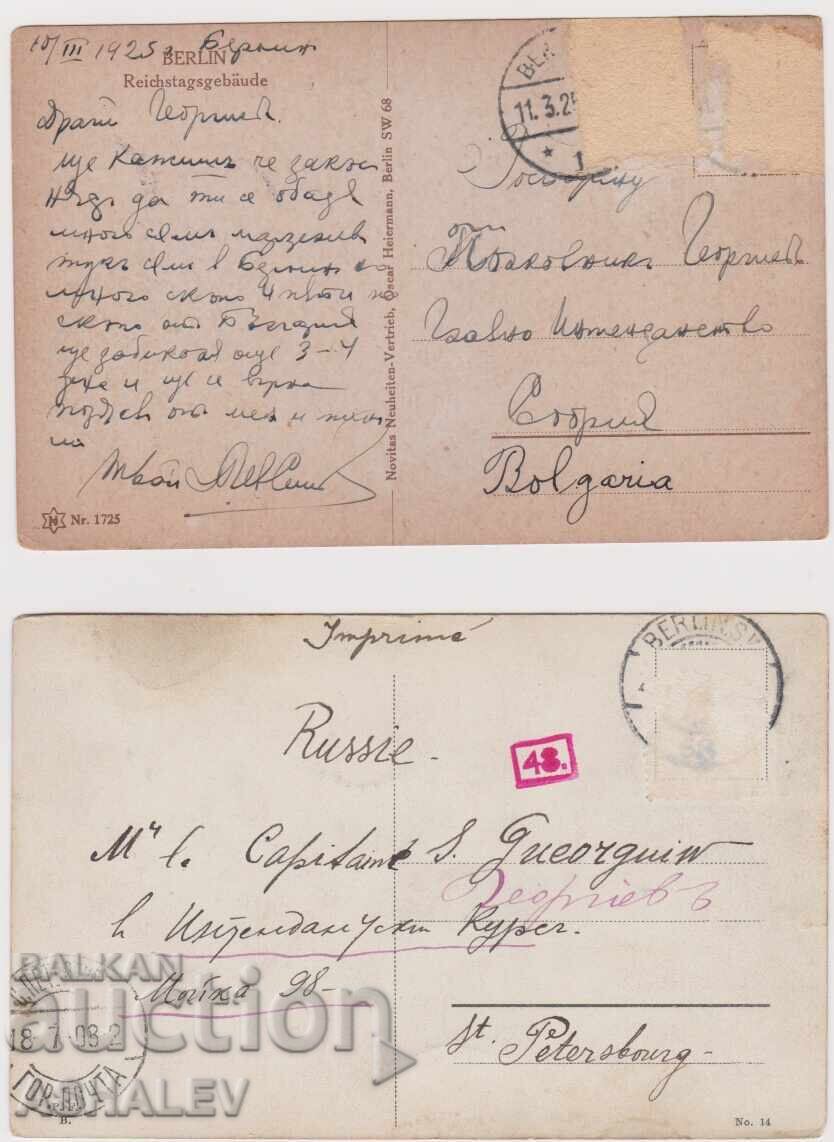 10/III 1925 г. Берлин
BERLIN
Reichstagsgebäude
Драги Георгиев.
ще кажишъ че закъс
нѣхъ да ти се обадя
много съмъ мързелив
тукъ съм в Берлин
много скъпо 4 пъти по
скъпо от България
ще забиколя още 3-4
деня и ще се върна
поздрав от мен и
Твой
Nr. 1725
Novitas Neuheiten-Vertrieb, Oscar Heiermann, Berlin SW 68
BER
11.3.25
* 1
Господину
Полковникъ Георгиевъ
Главно Интенданство
София
Bolgaria
Imprimé
BERLIN.S.
Russie.
48.
Mʳ l. Capitaine S. Gueorguiew
Георгиевъ
в Интендантски Курсъ.
Мойка 98-
St. Petersbourg-
18-7-08-2
ГОР.ПОЧТА
BALKAN
auction
MIHALEV
B.
No. 14